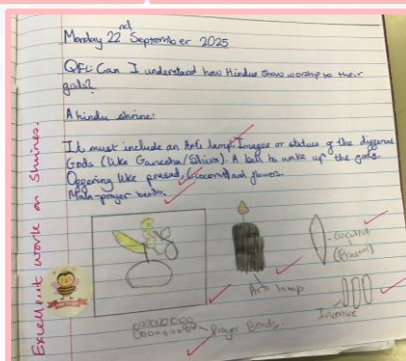 Monday 22nd September 2025
QFL: Can I understand how Hindus show worship to their
gods?
A hindu shrine:
It must include an Arti lamp. Images or statues of the different
Gods (like Ganesha/Shiva). A bell to wake up the gods.
Offering like prasad, (coconut) and flowers.
Mala-prayer beads.
Excellent work on Shrines.
coconut
(Prasad)
Arti lamp
Incense
Prayer Beads.